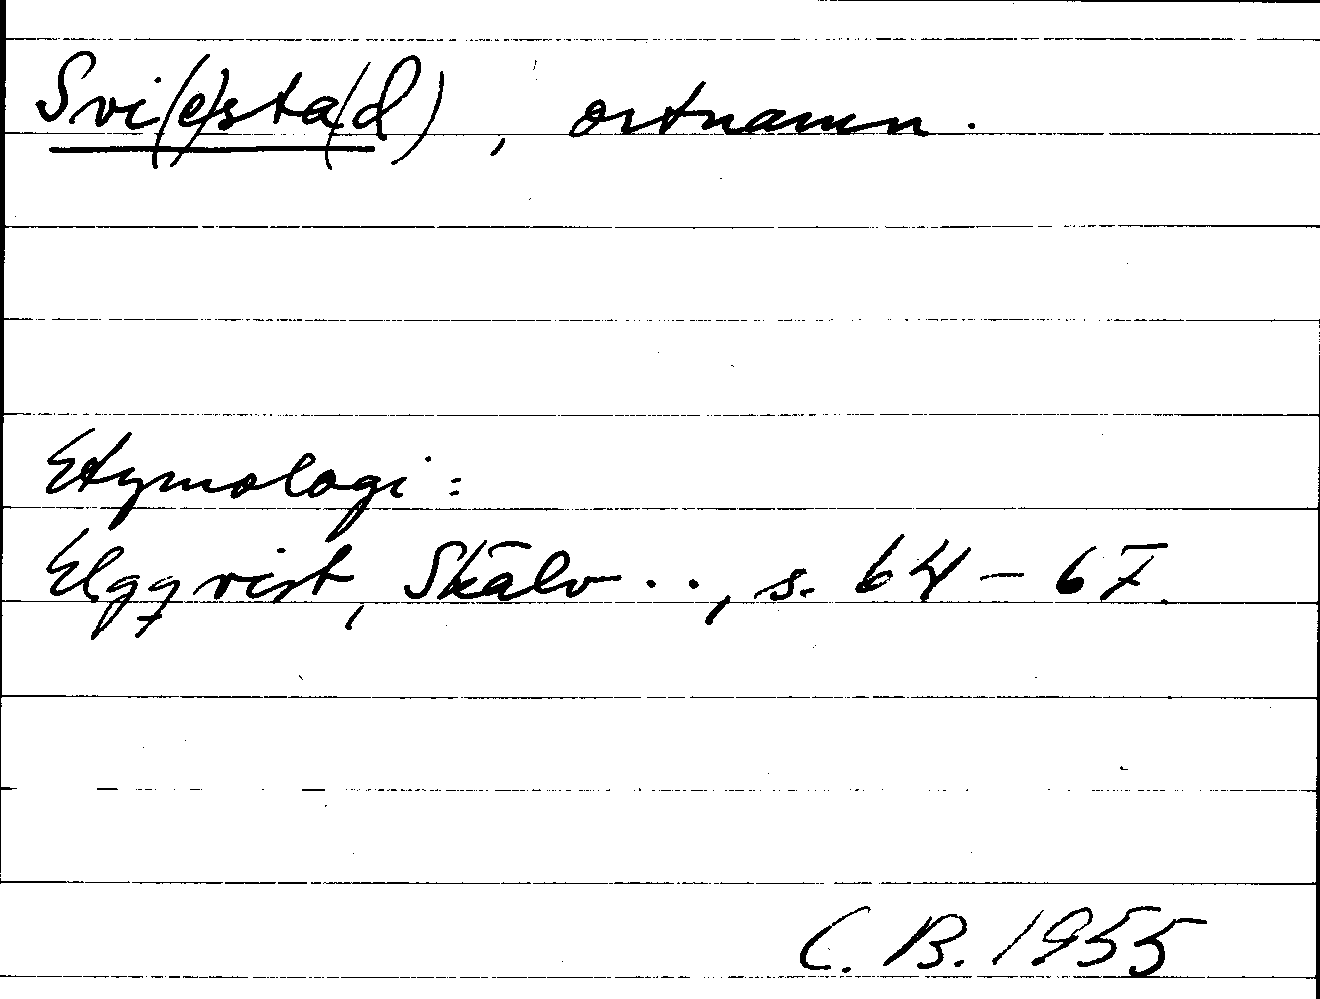 Svi(e)sta(d), ortnamn.
Etymologi:
Elgqvist, Skälv . ., s. 64 – 67.
C. B. 1955